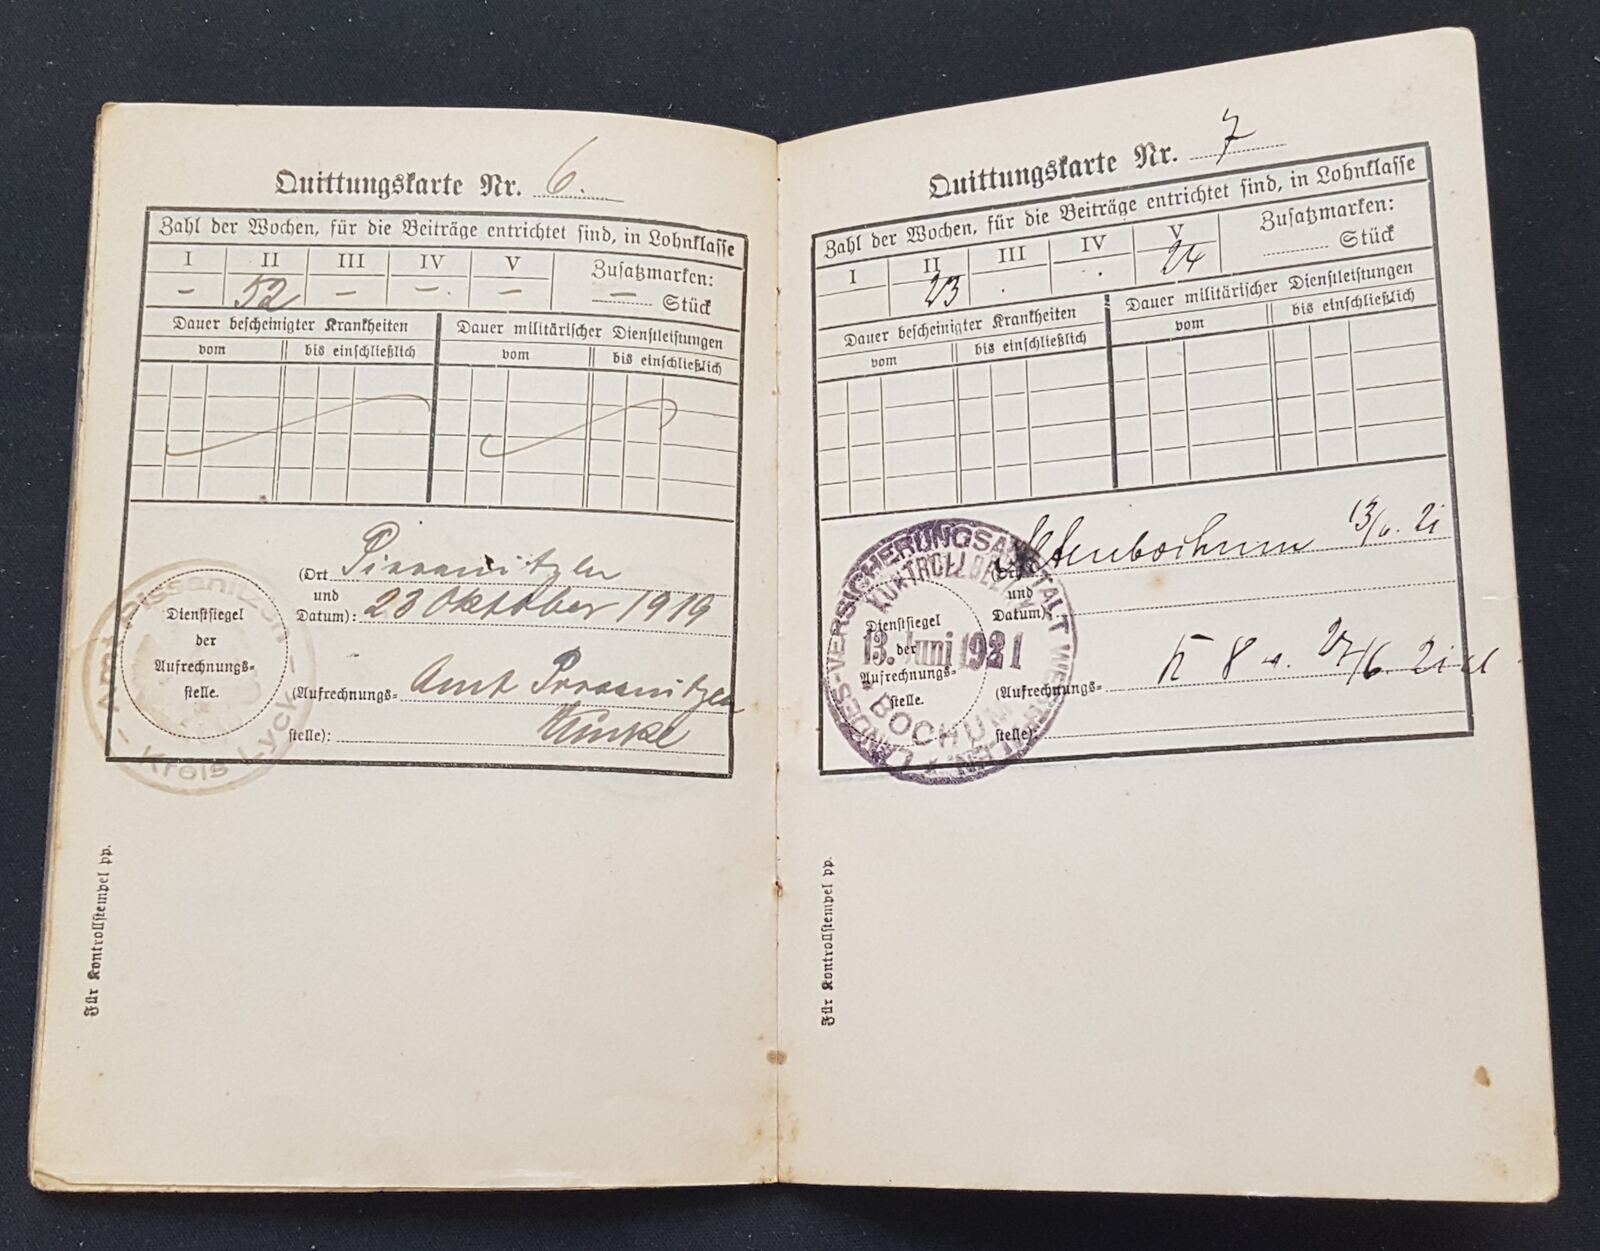 Quittungskarte Nr. 6.
Zahl der Wochen, für die Beiträge entrichtet sind, in Lohnklasse
I II III IV V Zusatzmarken:
– 52 – – – – Stück
Dauer bescheinigter Krankheiten Dauer militärischer Dienstleistungen
vom bis einschließlich vom bis einschließlich
(Ort Pissanitzen
und
Datum): 23 Oktober 1919
Dienstsiegel
der
Aufrechnungs-
stelle.
(Aufrechnungs- Amt Pissanitzen
stelle):
Amt Pissanitzen – Kreis Lyck –
Für Kontrollstempel pp.
Quittungskarte Nr. 7
Zahl der Wochen, für die Beiträge entrichtet sind, in Lohnklasse
I II III IV V Zusatzmarken:
23 24 Stück
Dauer bescheinigter Krankheiten Dauer militärischer Dienstleistungen
vom bis einschließlich vom bis einschließlich
(Ort Altenbochum 13/6. 21
und
Datum):
Dienstsiegel
der
Aufrechnungs-
stelle.
(Aufrechnungs- K 8 27/6 21
stelle):
LANDES-VERSICHERUNGSANSTALT WESTFALEN
13. Juni 1921
BOCHUM
Für Kontrollstempel pp.